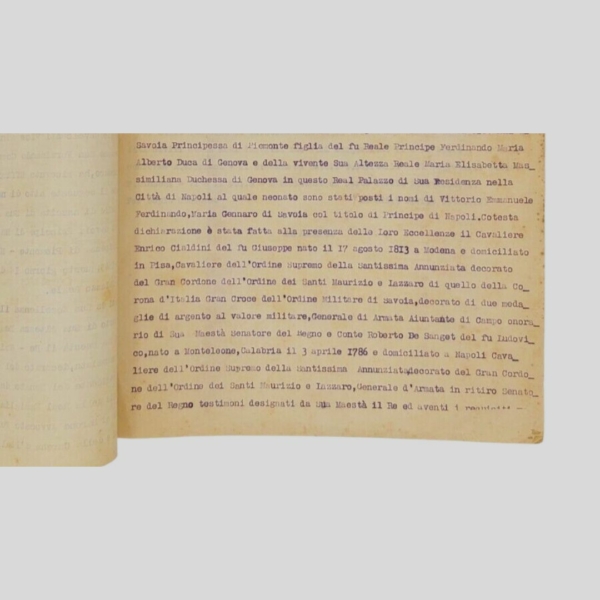 Savoia Principessa di Piemonte figlia del fu Reale Principe Ferdinando Maria
Alberto Duca di Genova e della vivente Sua Altezza Reale Maria Elisabetta Mas_
similiana Duchessa di Genova in questo Real Palazzo di Sua Residenza nella
Città di Napoli al quale neonato sono stati posti i nomi di Vittorio Emmanuele
Ferdinando,Maria Gennaro di Savoia col titolo di Principe di Napoli.Cotesta
dichiarazione è stata fatta alla presenza delle loro Eccellenze il Cavaliere
Enrico Cialdini del fu Giuseppe nato il 17 agosto 1813 a Modena e domiciliato
in Pisa,Cavaliere dell'Ordine Supremo della Santissima Annunziata decorato
del Gran Cordone dell'Ordine dei Santi Maurizio e Lazzaro di quello della Co_
rona d'Italia Gran Croce dell'Ordine Militare di Savoia,decorato di due meda_
glie di argento al valore militare,Generale di Armata Aiuntante di Campo onora_
rio di Sua Maestà Senatore del Regno e Conte Roberto De Sanget del fu Ludovi_
co,nato a Monteleone,Calabria il 3 aprile 1786 e domiciliato a Napoli Cava_
liere dell'Ordine Supremo della Santissima Annunziata,decorato del Gran Cordo_
ne dell'Ordine dei Santi Maurizio e Lazzaro,Generale d'Armata in ritiro Senato_
re del Regno testimoni designati da Sua Maestà il Re ed aventi i